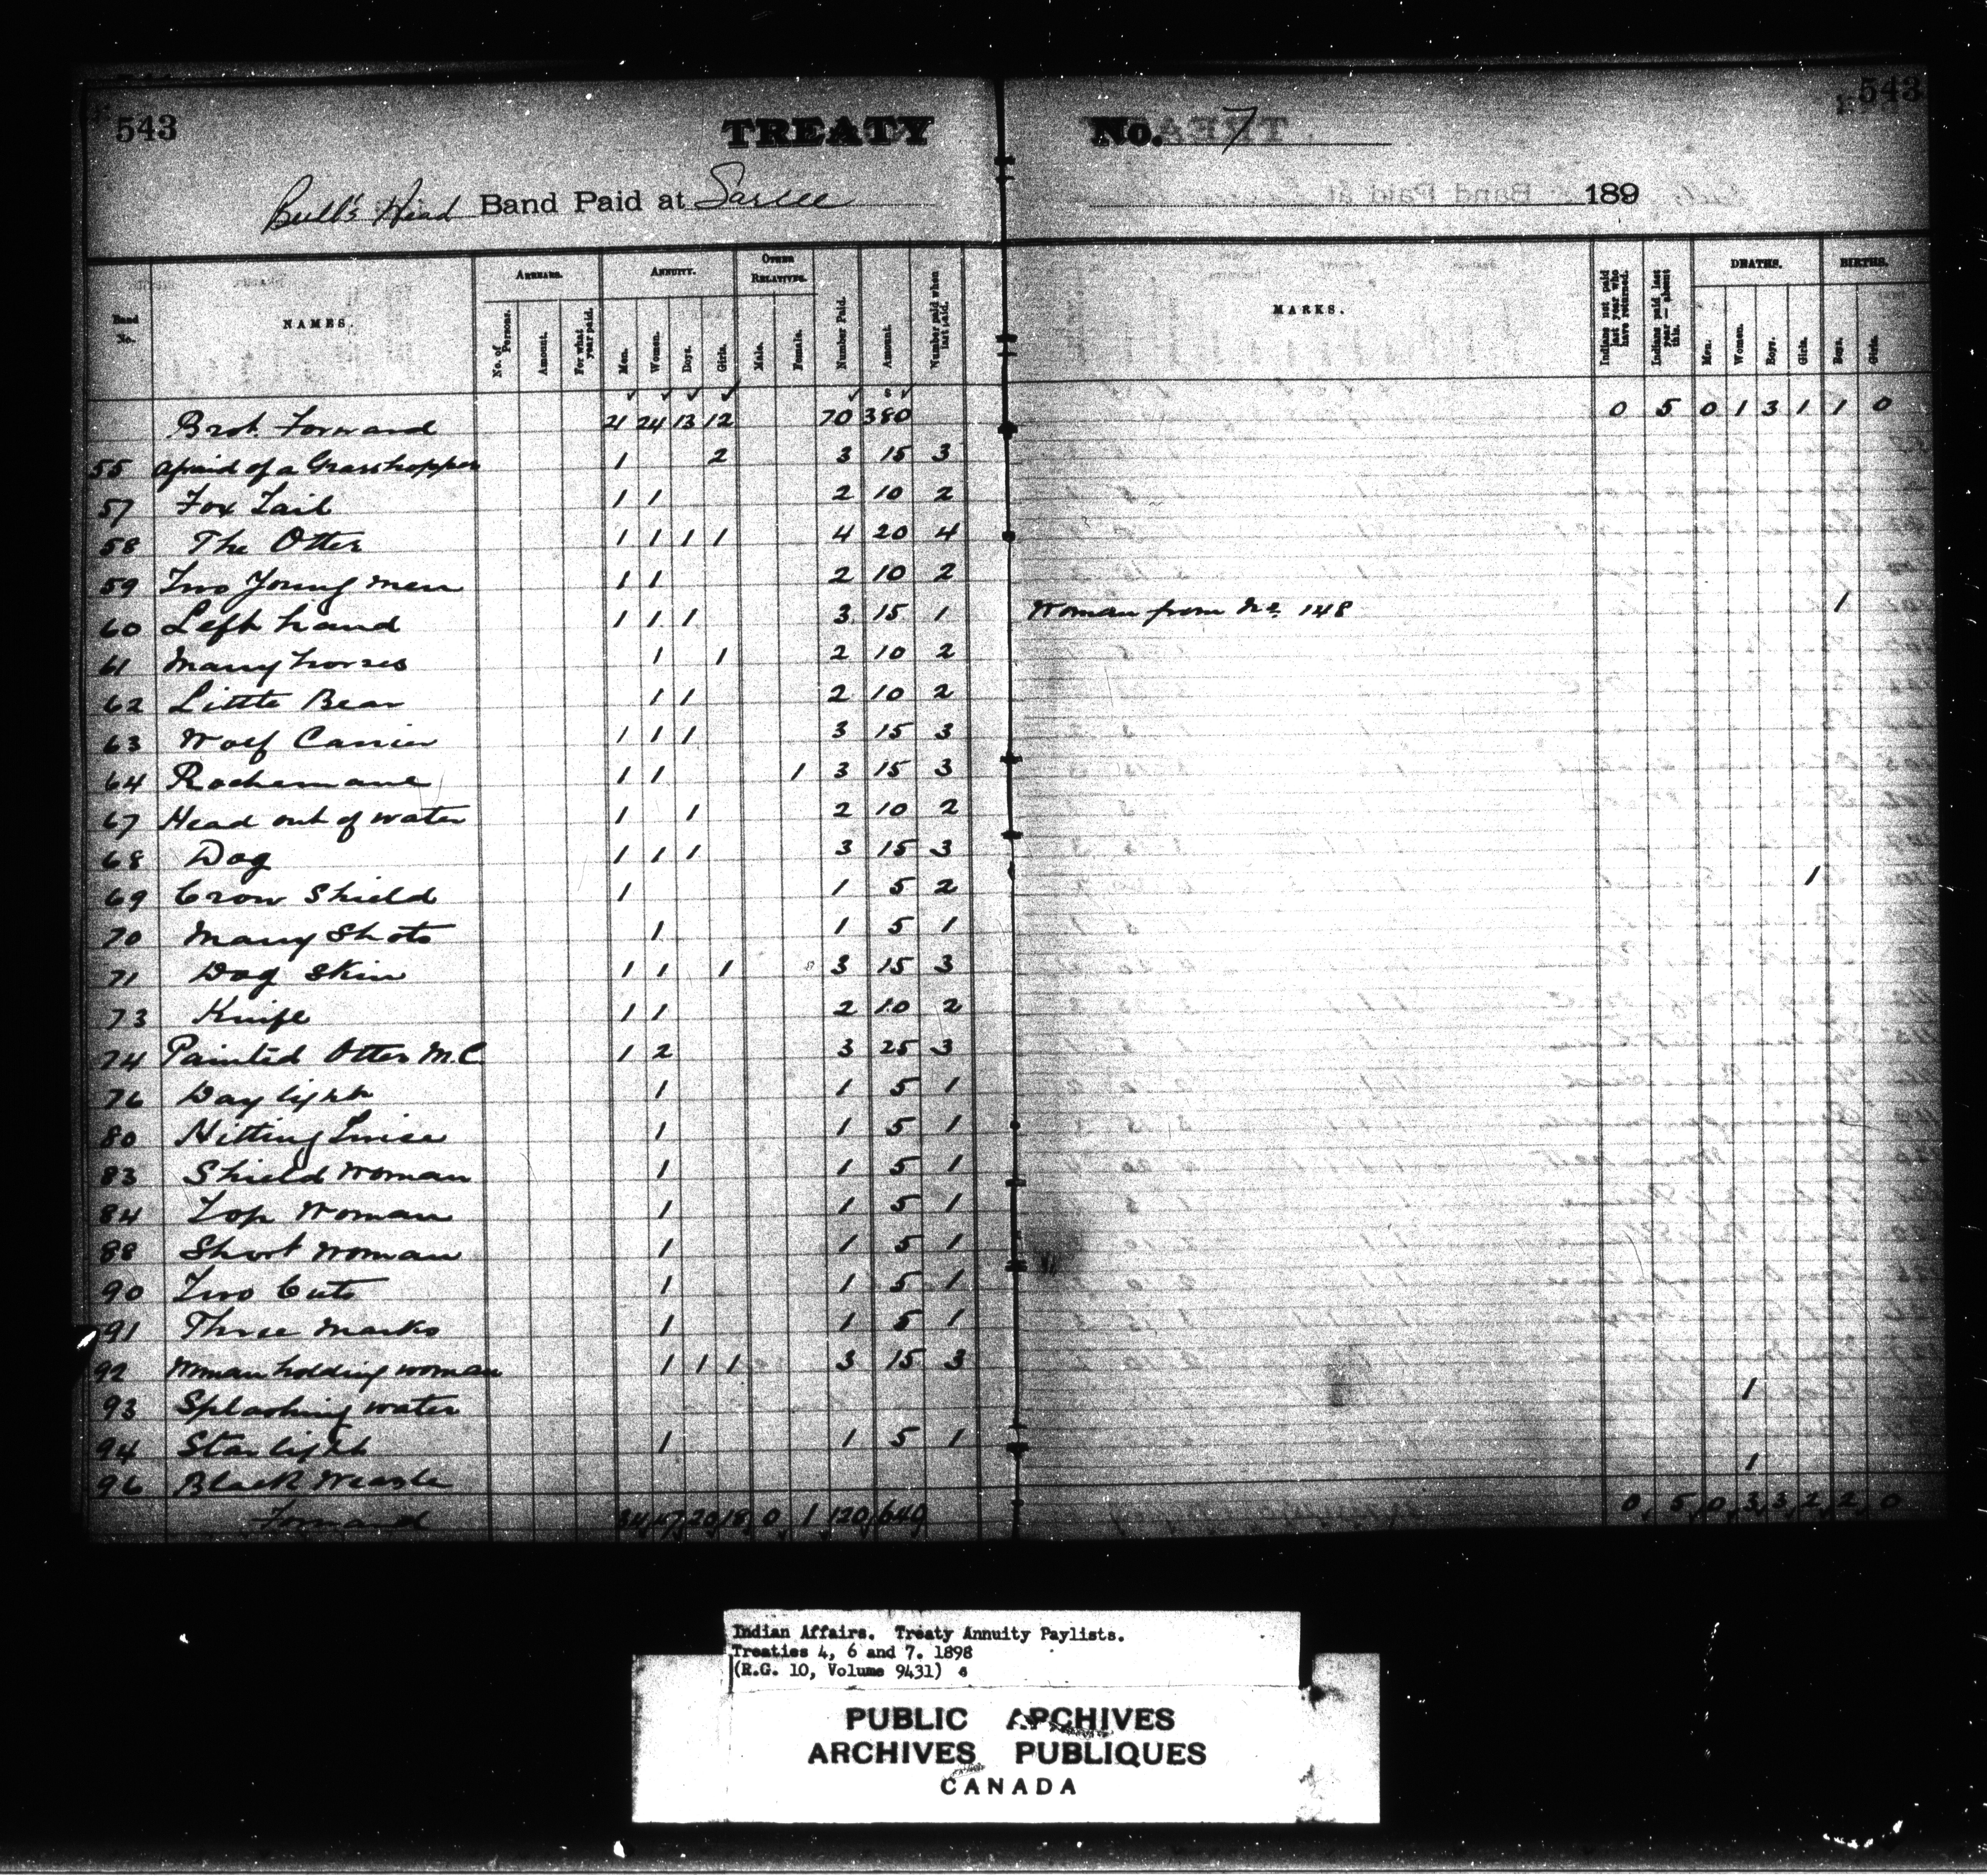 543 TREATY No. 7 543
Bull's Head Band Paid at Sarcee 189
Band No. NAMES. ARREARS. No. of Persons. Amount. For what year paid. ANNUITY. Men. Women. Boys. Girls. OTHER RELATIVES. Male. Female. Number Paid. Amount. Number paid when last paid. MARKS. Indians not paid last year who have returned. Indians paid last year — absent this. DEATHS. Men. Women. Boys. Girls. BIRTHS. Boys. Girls.
Brot. Forward 21 24 13 12 70 380 0 5 0 1 3 1 1 0
55 Afraid of a Grasshopper 1 2 3 15 3
57 Fox Tail 1 1 2 10 2
58 The Otter 1 1 1 1 4 20 4
59 Two Young Men 1 1 2 10 2
60 Left hand 1 1 1 3 15 1 Woman from No. 148 1
61 Many horses 1 1 2 10 2
62 Little Bear 1 1 2 10 2
63 Wolf Carrier 1 1 1 3 15 3
64 Rochemane 1 1 1 3 15 3
67 Head out of water 1 1 2 10 2
68 Dog 1 1 1 3 15 3
69 Crow Shield 1 1 5 2 1
70 Many Shots 1 1 5 1
71 Dog Skin 1 1 1 3 15 3
73 Knife 1 1 2 10 2
74 Painted Otter M.C. 1 2 3 25 3
76 Day light 1 1 5 1
80 Hitting Twice 1 1 5 1
83 Shield Woman 1 1 5 1
84 Top Woman 1 1 5 1
88 Short Woman 1 1 5 1
90 Two Cuts 1 1 5 1
91 Three Marks 1 1 5 1
92 Woman holding woman 1 1 1 3 15 3
93 Splashing water 1
94 Star light 1 1 5 1
96 Black 1
Forward 34 47 20 18 0 1 120 640 0 5 0 3 3 2 2 0
Indian Affairs. Treaty Annuity Paylists.
Treaties 4, 6 and 7. 1898
(R.G. 10, Volume 9431)
PUBLIC ARCHIVES
ARCHIVES PUBLIQUES
CANADA